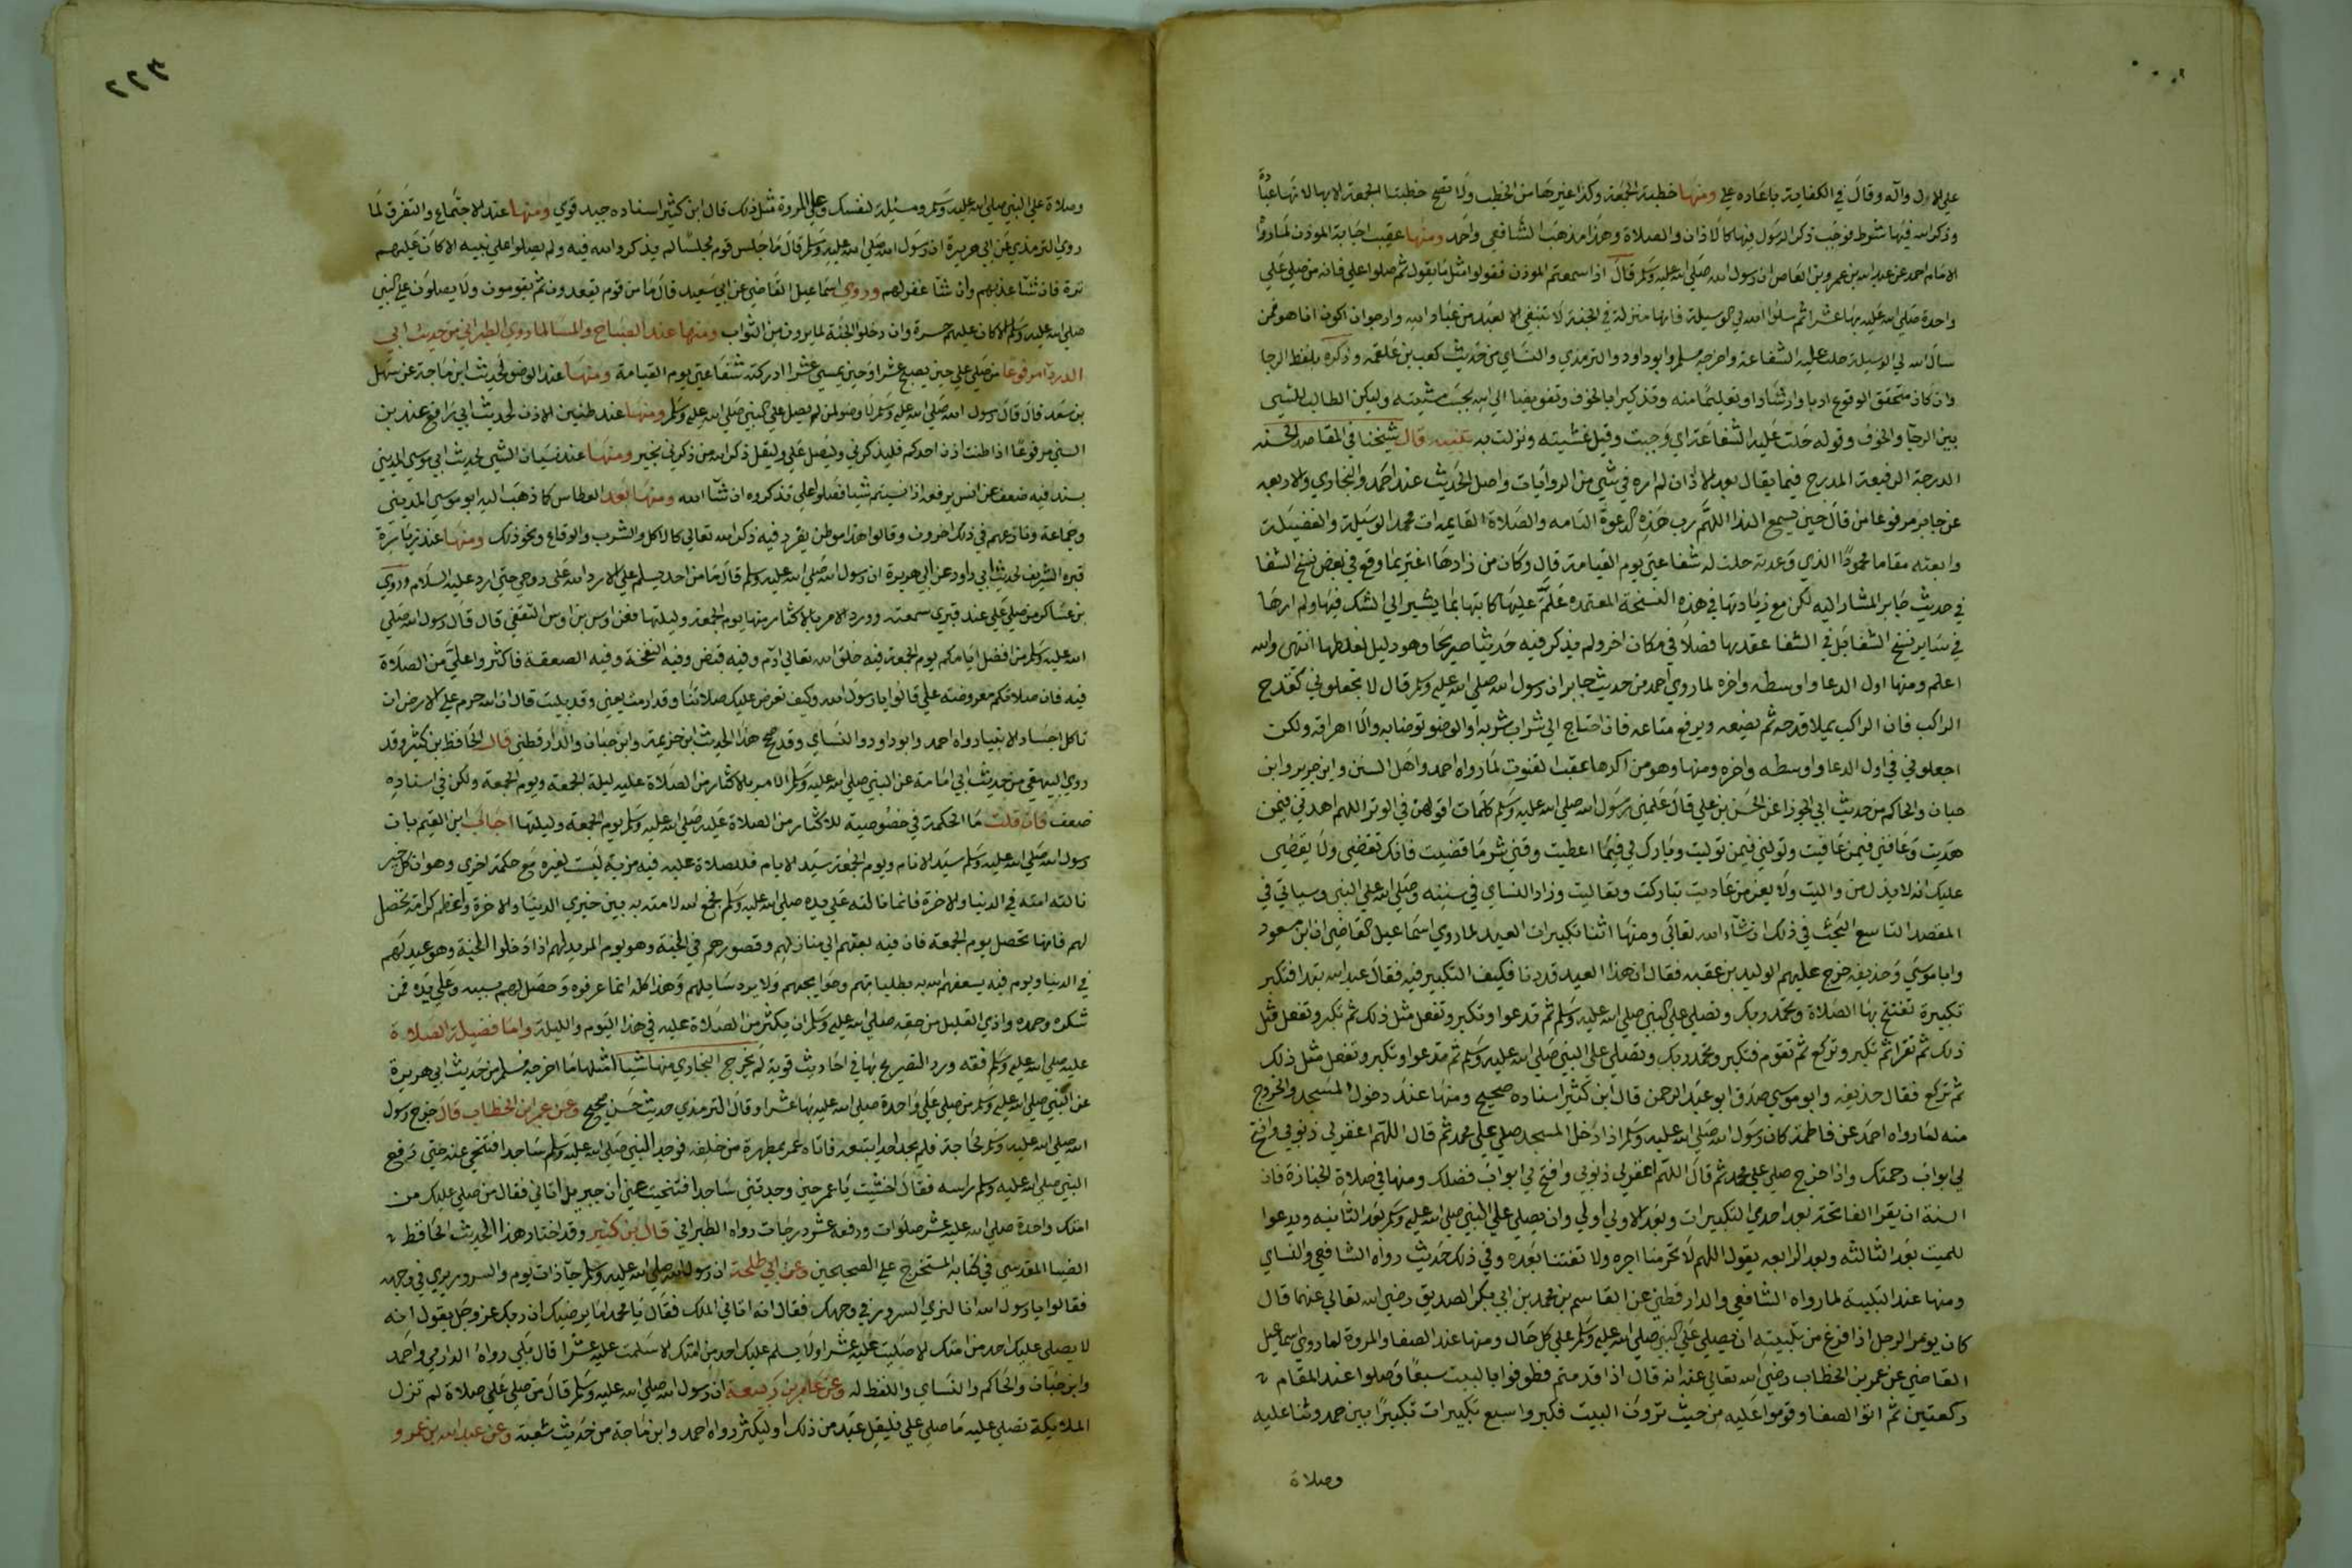 علي الاول واله وقال في الكفاية باعاده علي ومنها خطبة الجمعة وكذا غيرها من الخطب ولا تصح خطبتا الجمعة الا بها لانها عبادة
وذكر الله فيها شرط فوجب ذكر الرسول فيها كالاذان والصلاة وهذا مذهب الشافعي واحمد ومنها عقب اجابة الموذن لما رواه
الامام احمد عن عبد الله بن عمرو بن العاص ان رسول الله صلي الله عليه وسلم قال اذا سمعتم الموذن فقولوا مثل ما يقول ثم صلوا علي فانه من صلي علي
واحدة صلي الله عليه بها عشرا ثم سلوا الله لي الوسيلة فانها منزلة في الجنة لا تنبغي الا لعبد من عباد الله وارجوا ان اكون انا هو فمن
سال الله لي الوسيلة حلت عليه الشفاعة واخرجه مسلم وابو داود والترمذي والنساي من حديث كعب بن علقمة وذكره بلفظ الرجا
وان كان متحقق الوقوع ادبا وارشادا وتعليما منه وتذكيرا بالخوف وتفويضا الي الله بحسب مشيته وليكن الطالب للشي
بين الرجا والخوف وقوله حلت عليه الشفاعة اي وجبت وقيل غشيته ونزلت به تنبيه قال شيخنا في المقاصد الحسنه
الدرجة الرفيعة المدرج فيما يقال بعد الاذان لم اره في شي من الروايات واصل الحديث عند احمد والبخاري والاربعه
عن جابر مرفوعا من قال حين يسمع الندا اللهم رب هذه الدعوة التامه والصلاة القايمه ات محمدا الوسيلة والفضيلة
وابعثه مقاما محمودا الذي وعدته حلت له شفاعتي يوم القيامة قال وكان من زادها اغتر بما وقع في بعض نسخ الشفا
في حديث جابر المشار اليه لكن مع زيادتها في هذه النسخة المعتمده علم عليها كاتبها بما يشير الي الشك فيها ولم ارها
في ساير نسخ الشفا بل في الشفا عقد بها فصلا في مكان اخر ولم يذكر فيه حديثا صريحا وهو دليل لغلطها انتهي والله
اعلم ومنها اول الدعا واوسطه واخره لما روي احمد من حديث جابر ان رسول الله صلي الله عليه وسلم قال لا تجعلوني كقدح
الراكب فان الراكب يملا قدحه ثم يضعه ويرفع متاعه فاذا احتاج الي شراب شربه او الوضو توضا به والا اهراقه ولكن
اجعلوني في اول الدعا واوسطه واخره ومنها وهو من اكدها عقب القنوت لما رواه احمد واهل السنن وابن جرير وابن
حبان والحاكم من حديث ابي الجوزا عن الحسن بن علي قال علمني رسول الله صلي الله عليه وسلم كلمات اقولهن في الوتر اللهم اهدني فيمن
هديت وعافني فيمن عافيت وتولني فيمن توليت وبارك لي فيما اعطيت وقني شر ما قضيت فانك تقضي ولا يقضي
عليك انه لا يذل من واليت ولا يعز من عاديت تباركت وتعاليت وزاد النساي في سننه وصلي الله علي النبي وسياتي في
المقصد التاسع البحث في ذلك ان شاء الله تعالي ومنها اثنا تكبيرات العيد لما روي اسماعيل القاضي ان ابن مسعود
وابا موسي وحذيفه خرج عليهم الوليد بن عقبه فقال ان هذا العيد قد دنا فكيف التكبير فيه فقال عبد الله تبدا فتكبر
تكبيرة تفتتح بها الصلاة وتحمد ربك وتصلي علي النبي صلي الله عليه وسلم ثم تدعوا وتكبر وتفعل مثل ذلك ثم تكبر وتفعل مثل
ذلك ثم تقرا ثم تكبر وتركع ثم تقوم فتكبر وتحمد ربك وتصلي علي النبي صلي الله عليه وسلم ثم تدعوا وتكبر وتفعل مثل ذلك
ثم تركع فقال حذيفه وابو موسي صدق ابو عبد الرحمن قال ابن كثير اسناده صحيح ومنها عند دخول المسجد والخروج
منه لما رواه احمد عن فاطمة كان رسول الله صلي الله عليه وسلم اذا دخل المسجد صلي علي محمد ثم قال اللهم اغفر لي ذنوبي وافتح
لي ابواب رحمتك واذا خرج صلي علي محمد ثم قال اللهم اغفر لي ذنوبي وافتح لي ابواب فضلك ومنها في صلاة الجنازة فان
السنة ان يقرا الفاتحة بعد احدي التكبيرات وبعد الاولي اولي وان يصلي علي النبي صلي الله عليه وسلم بعد الثانيه ويدعوا
للميت بعد الثالثه وبعد الرابعه يقول اللهم لا تحرمنا اجره ولا تفتنا بعده وفي ذلك حديث رواه الشافعي والنساي
ومنها عند التلبية لما رواه الشافعي والدارقطني عن القاسم بن محمد بن ابي بكر الصديق رضي الله تعالي عنهما قال
كان يومر الرجل اذا فرغ من تلبيته ان يصلي علي النبي صلي الله عليه وسلم علي كل حال ومنها عند الصفا والمروة لما روي اسماعيل
القاضي عن عمر بن الخطاب رضي الله تعالي عنه انه قال اذا قدمتم فطوفوا بالبيت سبعا وصلوا عند المقام
ركعتين ثم اتوا الصفا وقوموا عليه من حيث ترون البيت فكبروا سبع تكبيرات تكبيرا بين حمد وثنا عليه
وصلاة
٢٢٣
وصلاة علي النبي صلي الله عليه وسلم ومسيلة لنفسك وعلي المروة مثل ذلك قال ابن كثير اسناده جيد قوي ومنها عند الاجتماع والتفرق لما
روي الترمذي عن ابي هريرة ان رسول الله صلي الله عليه وسلم قال ما جلس قوم مجلسا لم يذكروا الله فيه ولم يصلوا علي نبيه الا كان عليهم
ترة فان شا عذبهم وان شا غفر لهم وروي اسماعيل القاضي عن ابي سعيد قال ما من قوم يقعدون ثم يقومون ولا يصلون علي النبي
صلي الله عليه وسلم الا كان عليهم حسرة وان دخلوا الجنة لما يرون من الثواب ومنها عند الصباح والمسا لما روي الطبراني من حديث ابي
الدردا مرفوعا من صلي علي حين يصبح عشرا وحين يمسي عشرا ادركته شفاعتي يوم القيامة ومنها عند الوضو لحديث ابن ماجة عن سهل
بن سعد قال قال رسول الله صلي الله عليه وسلم لا وضو لمن لم يصل علي النبي صلي الله عليه وسلم ومنها عند طنين الاذن لحديث ابي رافع عند بن
السني مرفوعا اذا طنت اذن احدكم فليذكرني وليصل علي وليقل ذكر الله من ذكرني بخير ومنها عند نسيان الشي لحديث ابي موسي المديني
بسند فيه ضعف عن انس يرفعه اذا نسيتم شيا فصلوا علي تذكروه ان شا الله ومنها بعد العطاس كما ذهب اليه ابو موسي المديني
وجماعة ونازعهم في ذلك اخرون وقالوا هذا موطن يفرد فيه ذكر الله تعالي كالاكل والشرب والوقاع ونحو ذلك ومنها عند زيارة
قبره الشريف لحديث ابي داود عن ابي هريرة ان رسول الله صلي الله عليه وسلم قال ما من احد يسلم علي الا رد الله علي روحي حتي ارد عليه السلام وروي
بن عساكر من صلي علي عند قبري سمعته وورد الامر بالاكثار منها يوم الجمعة وليلتها فعن اوس بن اوس الثقفي قال قال رسول الله صلي
الله عليه وسلم من افضل ايامكم يوم الجمعة فيه خلق الله تعالي ادم وفيه قبض وفيه النفخة وفيه الصعقة فاكثروا علي من الصلاة
فيه فان صلاتكم معروضة علي قالوا يا رسول الله وكيف تعرض عليك صلاتنا وقد ارمت يعني وقد بليت قال ان الله حرم علي الارض ان
تاكل اجساد الانبيا رواه احمد وابو داود والنساي وقد صحح هذا الحديث ابن خزيمة وابن حبان والدارقطني قال الحافظ بن كثير وقد
روي البيهقي من حديث ابي امامة عن النبي صلي الله عليه وسلم الامر بالاكثار من الصلاة عليه ليلة الجمعة ويوم الجمعة ولكن في اسناده
ضعف فان قلت ما الحكمة في خصوصية الاكثار من الصلاة عليه صلي الله عليه وسلم يوم الجمعة وليلتها اجاب ابن القيم بان
رسول الله صلي الله عليه وسلم سيد الانام ويوم الجمعة سيد الايام فللصلاة عليه فيه مزية ليست لغيره مع حكمة اخري وهو ان كل خير
نالته امته في الدنيا والاخرة فانما نالته علي يده صلي الله عليه وسلم فجمع الله لامته به بين خيري الدنيا والاخرة واعظم كرامة تحصل
لهم فانها تحصل يوم الجمعة فان فيه بعثهم الي منازلهم وقصورهم في الجنة وهو يوم المزيد لهم اذا دخلوا الجنة وهو عيد لهم
في الدنيا ويوم فيه يسعفهم الله به بطلباتهم وحوايجهم ولا يرد سايلهم وهذا كله انما عرفوه وحصل لهم بسببه وعلي يده فمن
شكره وحمده وادي القليل من حقه صلي الله عليه وسلم ان يكثر من الصلاة عليه في هذا اليوم والليلة واما فضيلة الصلاة
عليه صلي الله عليه وسلم فقد ورد التصريح بها في احاديث قوية لم يخرج البخاري منها شيا امثلها ما اخرجه مسلم من حديث ابي هريرة
عن النبي صلي الله عليه وسلم من صلي علي واحدة صلي الله عليه بها عشرا وقال الترمذي حديث حسن صحيح وعن عمر ابن الخطاب قال خرج رسول
الله صلي الله عليه وسلم لحاجة فلم يجد احدا يتبعه فاتاه عمر بمطهرة من خلفه فوجد النبي صلي الله عليه وسلم ساجدا فتنحي عنه حتي رفع
النبي صلي الله عليه وسلم راسه فقال احسنت يا عمر حين وجدتني ساجدا فتنحيت عني ان جبريل اتاني فقال من صلي عليك من
امتك واحدة صلي الله عليه عشر صلوات ورفعه عشر درجات رواه الطبراني قال بن كثير وقد اختار هذا الحديث الحافظ
الضيا المقدسي في كتابه المستخرج علي الصحيحين وعن ابي طلحة ان رسول الله صلي الله عليه وسلم جا ذات يوم والسرور يري في وجهه
فقالوا يا رسول الله انا لنري السرور في وجهك فقال انه اتاني الملك فقال يا محمد اما يرضيك ان ربك عز وجل يقول انه
لا يصلي عليك احد من امتك الا صليت عليه عشرا ولا يسلم عليك احد من امتك الا سلمت عليه عشرا قال بلي رواه الدارمي واحمد
وابن حبان والحاكم والنساي واللفظ له وعن عامر بن ربيعة ان رسول الله صلي الله عليه وسلم قال من صلي علي صلاة لم تزل
الملايكة تصلي عليه ما صلي علي فليقل عبد من ذلك او ليكثر رواه احمد وابن ماجة من حديث شعبة وعن عبد الله بن عمرو